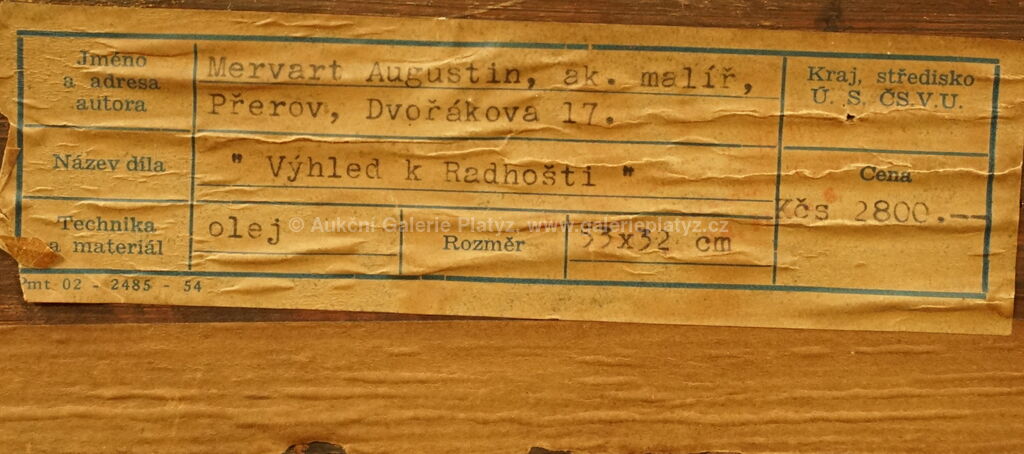 Jméno
a adresa
autora
Mervart Augustin, ak. malíř,
Přerov, Dvořákova 17.
Kraj, středisko
Ú. S. ČS.V.U.
Název díla
" Výhled k Radhošti "
Cena
Kčs 2800.--
Technika
a materiál
olej
Rozměr
cm
© Aukční Galerie Platýz, www.galerieplatyz.cz
Pmt 02 - 2485 - 54